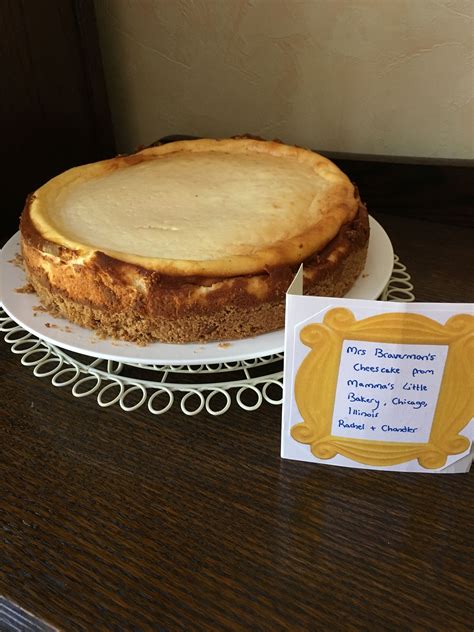 Mrs Braverman's
Cheescake from
Mamma's Little
Bakery, Chicago,
Illinois
Rachel + Chandler